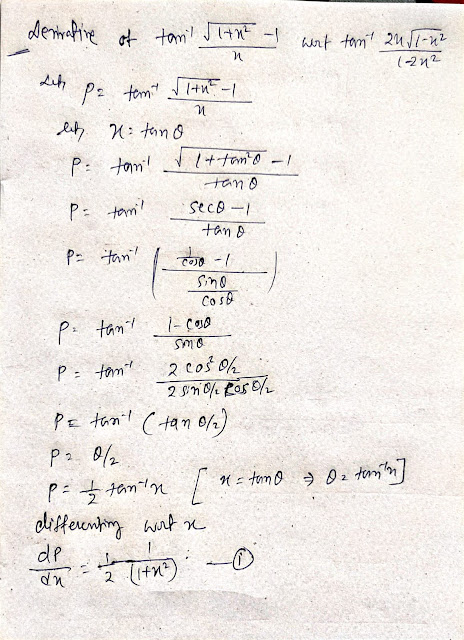 Derivative of tan⁻¹ (√(1+x²) -1)/x wrt tan⁻¹ (2x√(1-x²))/(1-2x²)
Let P = tan⁻¹ (√(1+x²) -1)/x
let x = tanθ
P = tan⁻¹ (√(1+tan²θ) -1)/tanθ
P = tan⁻¹ (secθ -1)/tanθ
P = tan⁻¹ ((1/cosθ -1)/(sinθ/cosθ))
P = tan⁻¹ (1-cosθ)/sinθ
P = tan⁻¹ (2 cos² θ/2)/(2 sin θ/2 cos θ/2)
P = tan⁻¹ (tan θ/2)
P = θ/2
P = 1/2 tan⁻¹x [x = tanθ ⇒ θ = tan⁻¹x]
differenting wrt x
dP/dx = 1/2 1/(1+x²) —①